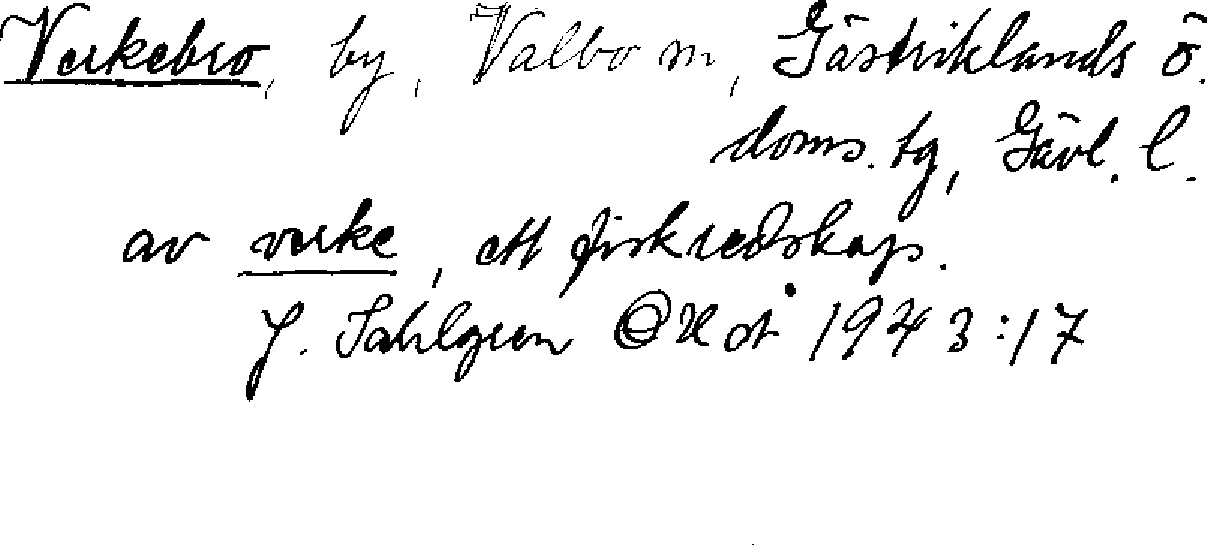 Verkebro, by, Valbo sn, Gästriklands ö.
doms. tg, Gävl. l.
av verke, ett fiskredskap.
J. Sahlgren 1943:17